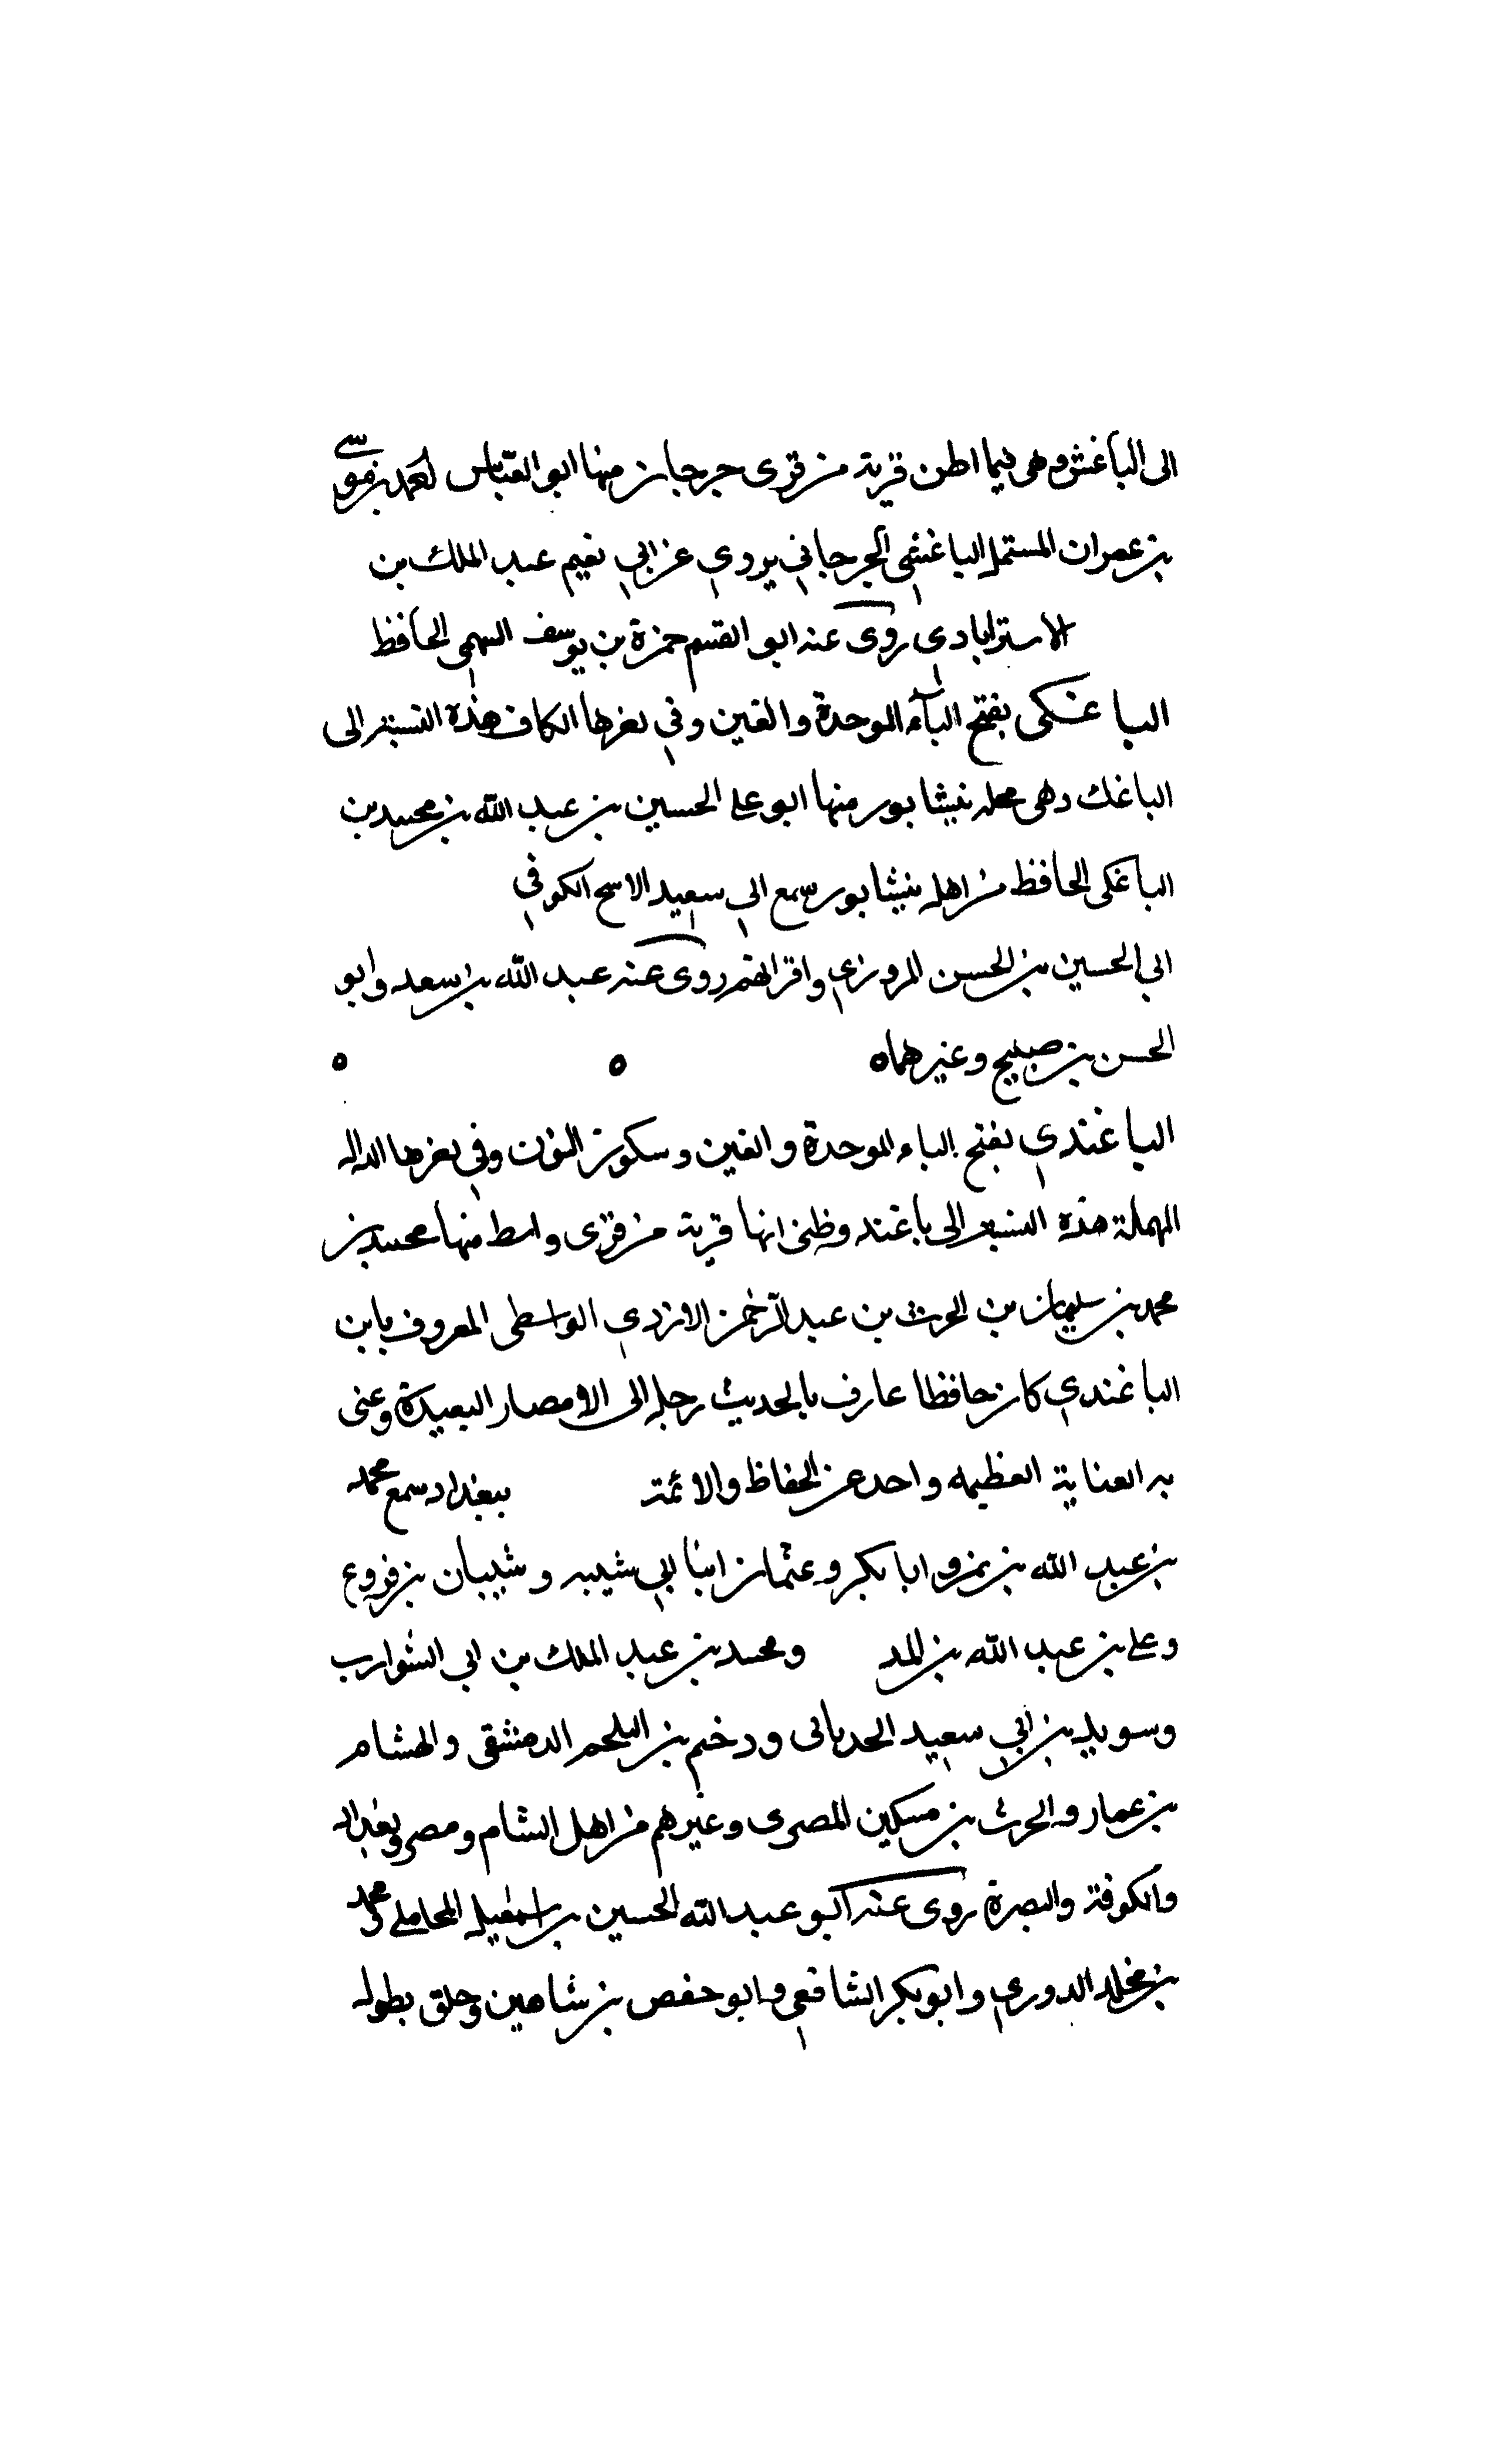 الى الباغش وهى فيما اظن قرية من قرى جرجان منها ابو العباس احمد بن موسى
بن عمران المستملى الباغشى الجرجاني يروي عن ابي نعيم عبد الملك بن
الاسترابادي روى عنه ابو القسم حمزة بن يوسف السهمى الحافظ
الباغكى بفتح الباء الموحدة والغين وفي اخرها الكاف هذه النسبة الى
الباغك وهى محله نيشابور منها ابو على الحسين بن عبد الله بن محمد بن
الباغكى الحافظ من اهل نيشابور سمع ابي سعيد الاشج الكوفي
ابي الحسين بن الحسن المروزي واقرانهم روى عنه عبد الله بن سعد وابو
الحسن بن صبيح وغيرهما ه ه ه
الباغندي بفتح الباء الموحدة والغين وسكون النون وفي اخرها الدال
المهملة هذه النسبة الى باغند وظنى انها قرية من قرى واسط منها محمد بن
محمد بن سليمان بن الحرث بن عبد الرحمن الازدي الواسطى المعروف بابن
الباغندي كان حافظا عارف بالحديث رحل الى الامصار البعيدة وعنى
به العناية العظيمه واحد عن الحفاظ والائمة ببغداد سمع محمد
بن عبد الله بن نمير وابا بكر وعثمان ابنا ابي شيبه وشيبان بن فروع
وعلى بن عبد الله بن المد ومحمد بن عبد الملك بن ابي الشوارب
وسويد بن ابي سعيد الحدىانى ودخيم بن اليلحم الدمشقى والهشام
بن عمار والحرث بن مسكين المصرى وغيرهم من اهل الشام ومصر وبغداد
والكوفة والبصرة روى عنه ابو عبد الله الحسين بن اسمعيل المحاملى ومحمد
بن مخلد الدوري وابو بكر الشافعي وابو حفص بن شاهين وخلق بطول